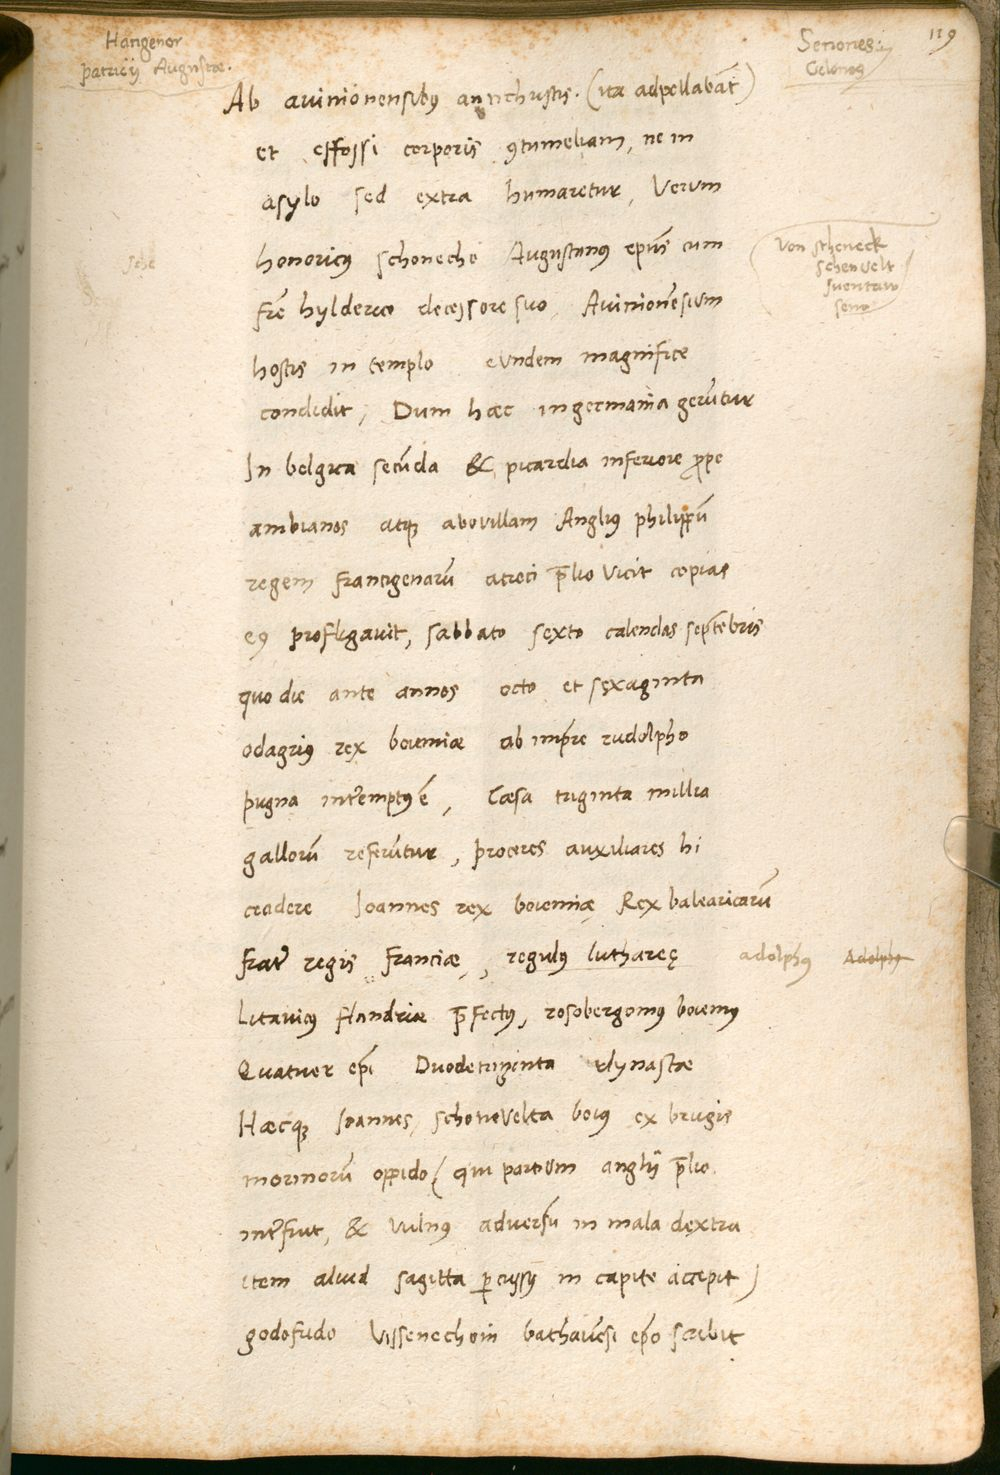 119
Hangenor
patricij Augustæ.
Senones
Gelonos
Ab avinionensibꝰ antichristis. (ita adpellabāt)
et effossi corporis ꝯtumeliam, ne in
asylo sed extra humaretur, Verum
honoricꝰ schoneche Augustanꝰ epūs cum
frē hylderico decessore suo, Avinionēsium
hostis in templo eundem magnifice
condidit, Dum hæc in germania gerūtur
In belgica secūda & picardia inferiore ꝓpe
ambianos atqꝫ abovillam Anglꝰ philippū
regem francigenarū atroci p̄lio vicit copias
eꝰ profligavit, sabbato sexto calendas septēbris
quo die ante annos octo et sexaginta
odagrius rex boiemiæ ab impre rudolpho
pugna intēremptꝰ ē, Cæsa triginta millia
gallorū referūtur, proceres auxiliares hi
cradere Ioannes rex boiemię Rex balearicarū
frater regis franciæ, regulꝰ lutharęę adolphꝰ Adolphꝰ
Litavicꝰ flandriæ p̄fectꝰ, rosobergomꝰ boiemꝰ
Quatuer epī Duodetriginta dynastæ
Hæcqꝫ Ioannes schonevelta boiꝰ ex brugis
morinorū oppido (qui partium anglij p̄lio
interfuit, & vulnꝰ adversū in mala dextra
item aliud sagitta ꝑcussꝰ in capite accepit)
godofrido Vissenechoin bathavēsi epō scribit
Von scheneck
schenvelt
sche